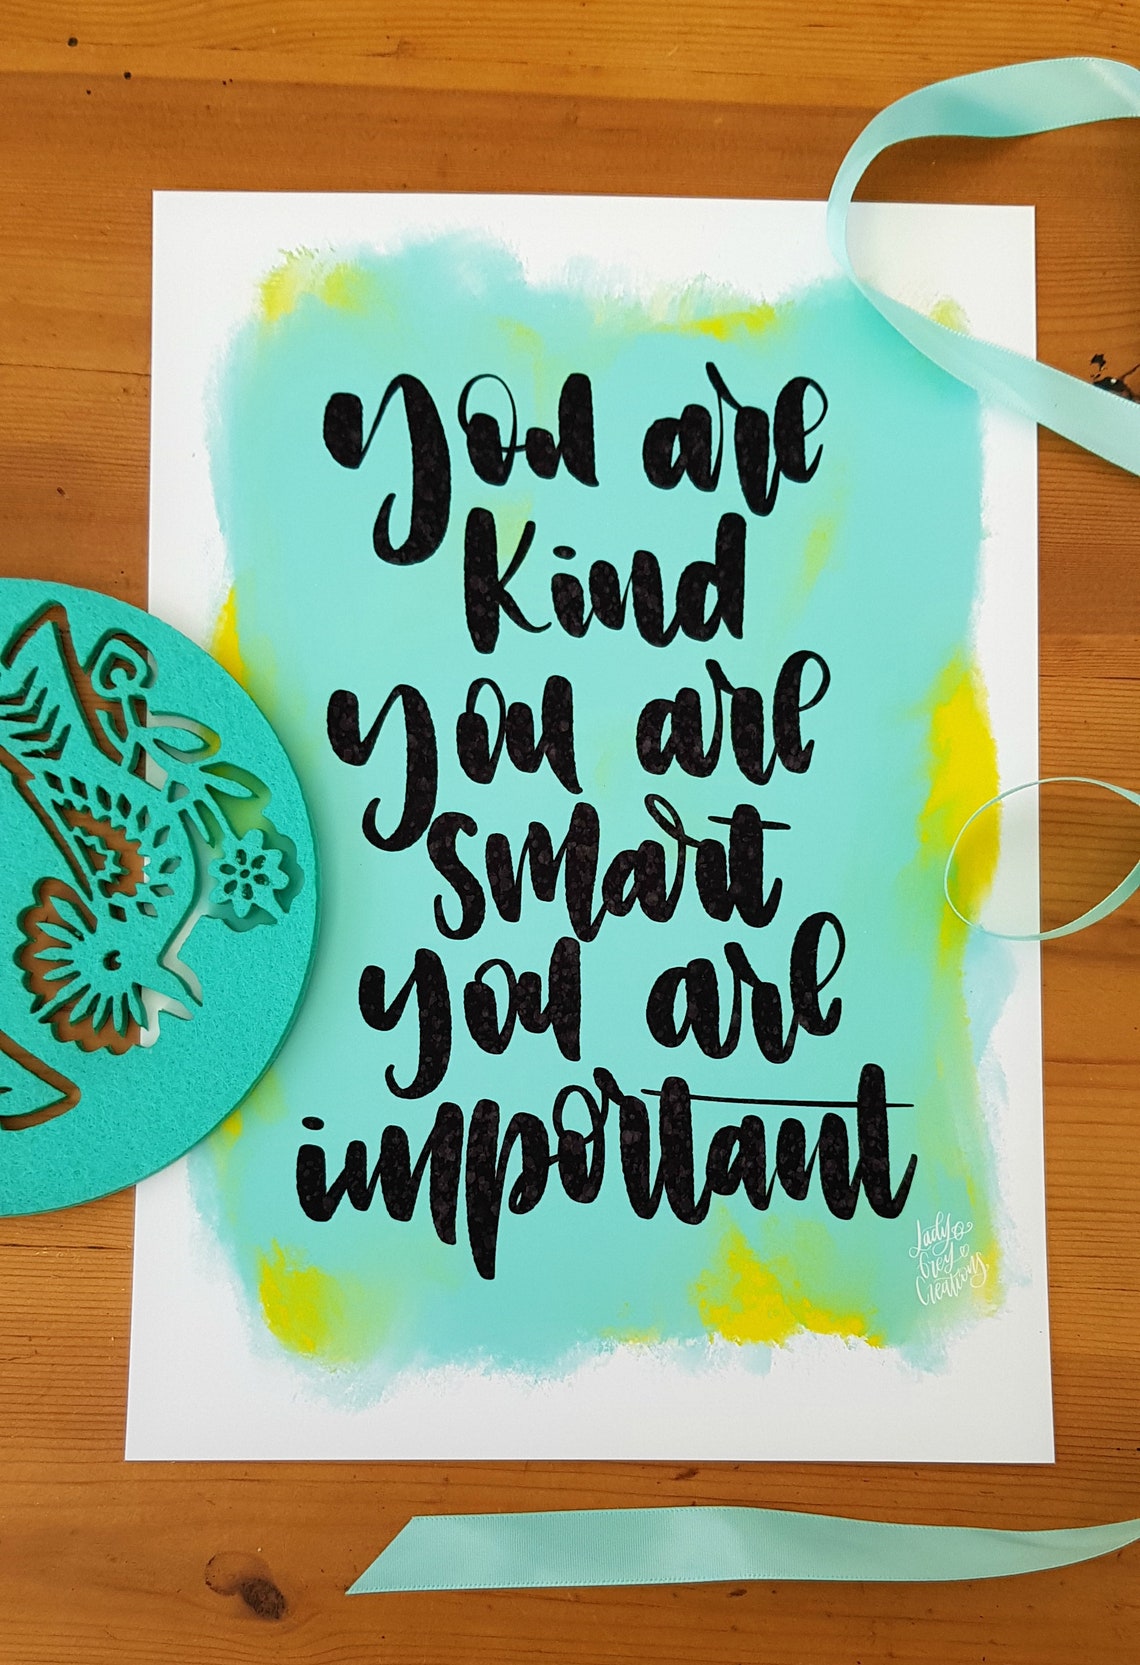 you are
kind
you are
smart
you are
important
Lady
Grey
Creations